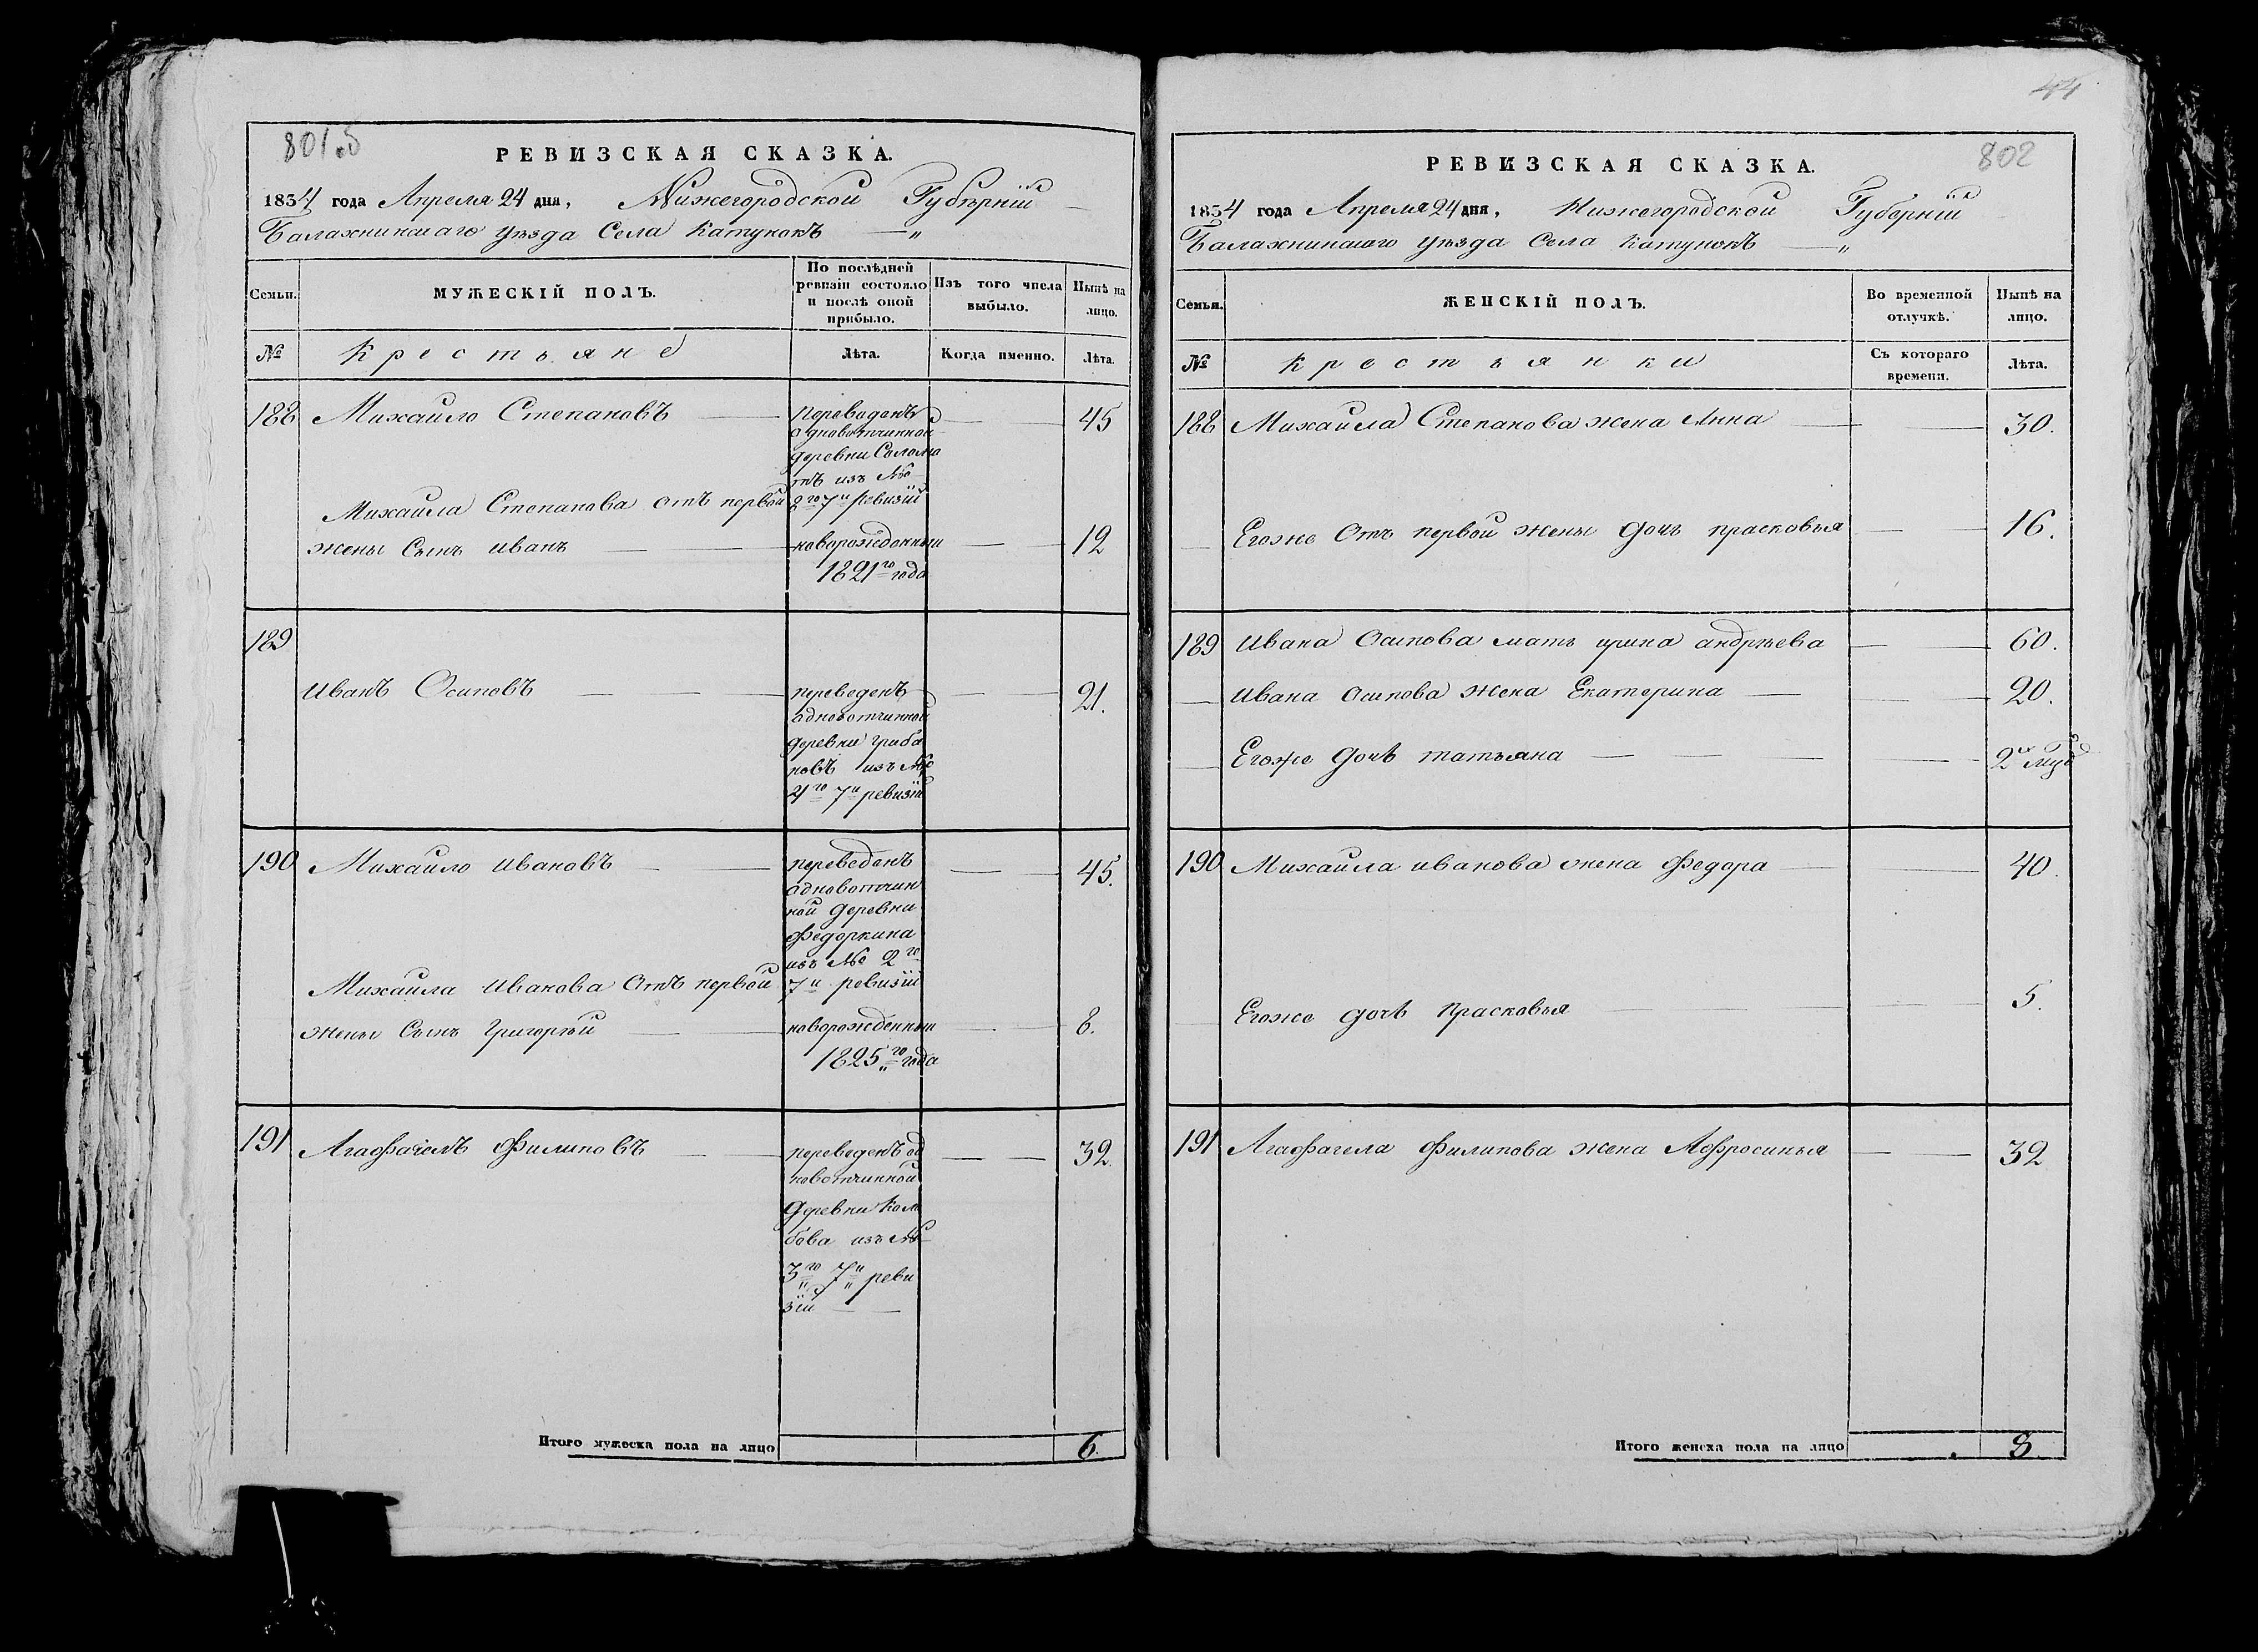 801 об
РЕВИЗСКАЯ СКАЗКА.
1834 года Апреля 24 дня, Нижегородской Губѣрнiи
Балахнинскаго уѣзда Села Катунокъ
Семьи.
МУЖЕСКІЙ ПОЛЪ.
По послѣдней
ревизіи состояло
и послѣ оной
прибыло.
Изъ того числа
выбыло.
Нынѣ на
лицо.
№
Крестьяне
Лѣта.
Когда именно.
Лѣта.
188 Михаило Степановъ
переведенъ
одновотчинной
деревни
изъ №
2го 7й ревизіи
45
Михаила Степанова отъ первой
жены Сынъ иванъ
новорожденный
1821го года
12
189
иванъ Осиповъ
переведенъ
одновотчинной
деревни гриба
новъ изъ №
4го 7й ревизіи
21.
190 Михаило ивановъ
переведенъ
одновотчин
ной деревни
Федоркина
изъ № 2го
7й ревизіи
45.
Михаила иванова отъ первой
жены Сынъ Григорѣй
новорожденный
1825го года
8.
191 Агафагелъ Филиповъ
переведенъ од
новотчинной
деревни Кол
бова изъ №
3го 7й реви
зіи
32.
Итого мужеска пола на лицо
6.
44
802
РЕВИЗСКАЯ СКАЗКА.
1834 года Апреля 24 дня, Нижегородской Губерніи
Балахнинскаго уѣзда Села Катунокъ
Семьи.
ЖЕНСКІЙ ПОЛЪ.
Во временной
отлучкѣ.
Нынѣ на
лицо.
№
Крестьянки
Съ котораго
времени.
Лѣта.
188 Михаила Степанова жена Анна
30.
Егоже Отъ первой жены дочь прасковья
16.
189 ивана Осипова мать ирина андрѣева
60.
ивана осипова жена Екатерина
20.
Егоже дочь татьяна
190 Михаила иванова жена Федора
40.
Егоже дочь Прасковья
5.
191 Агафагела Филипова жена Афросинья
32
Итого женска пола на лицо
8.